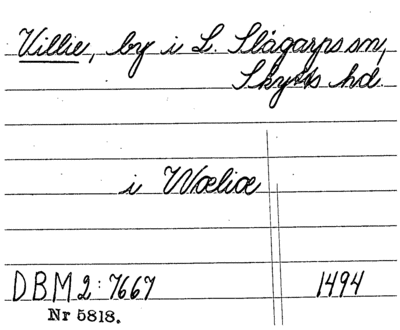 Villie, by i L. Slågarps sn,
Skytts hd.
i Wæliæ
DBM 2:7667 1494
Nr 5818.